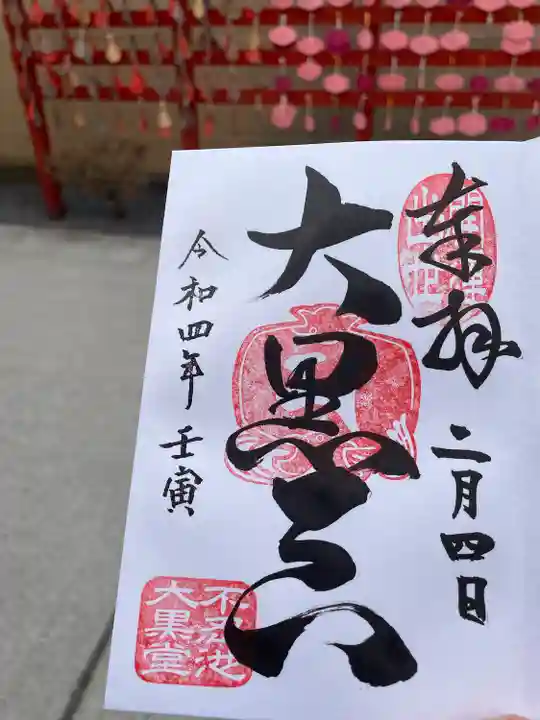 奉拝
二月四日
大黒天
令和四年 壬寅
不忍池
大黒堂